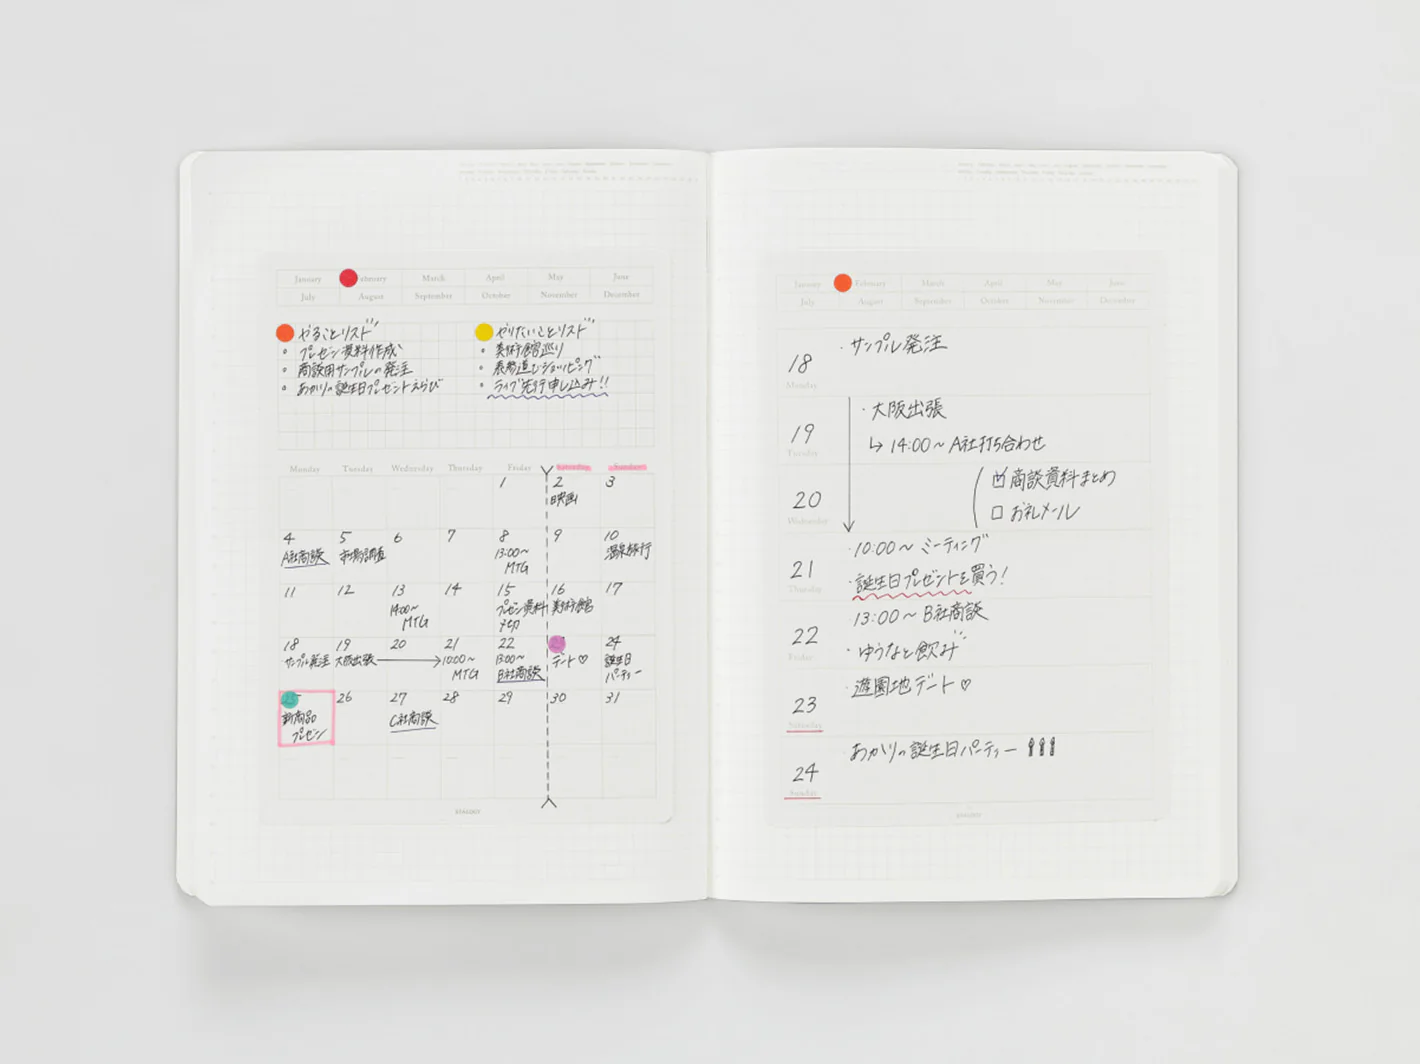 January February March April May June
July August September October November December
やることリスト
• プレゼン資料作成
• 商談用サンプルの発注
• あかりの誕生日プレゼントえらび
やりたいことリスト
• 美術館巡り
• 表参道でショッピング
• ライブ先行申し込み!!
Monday Tuesday Wednesday Thursday Friday Saturday Sunday
1 2 3
映画
4 5 6 7 8 9 10
A社商談 市場調査 13:00〜 MTG 温泉旅行
11 12 13 14 15 16 17
14:00〜 MTG プレゼン資料〆切 美術館
18 19 20 21 22 23 24
サンプル発注 大阪出張 10:00〜 MTG 13:00〜 B社商談 デート♡ 誕生日パーティー
25 26 27 28 29 30 31
新商品プレゼン C社商談
January February March April May June
July August September October November December
18 Monday
・サンプル発注
19 Tuesday
・大阪出張
↳ 14:00〜 A社打ち合わせ
20 Wednesday
☑ 商談資料まとめ
□ お礼メール
21 Thursday
・10:00〜 ミーティング
・誕生日プレゼントを買う!
22 Friday
13:00〜 B社商談
・ゆうなと飲み
23 Saturday
・遊園地デート♡
24 Sunday
あかりの誕生日パーティー